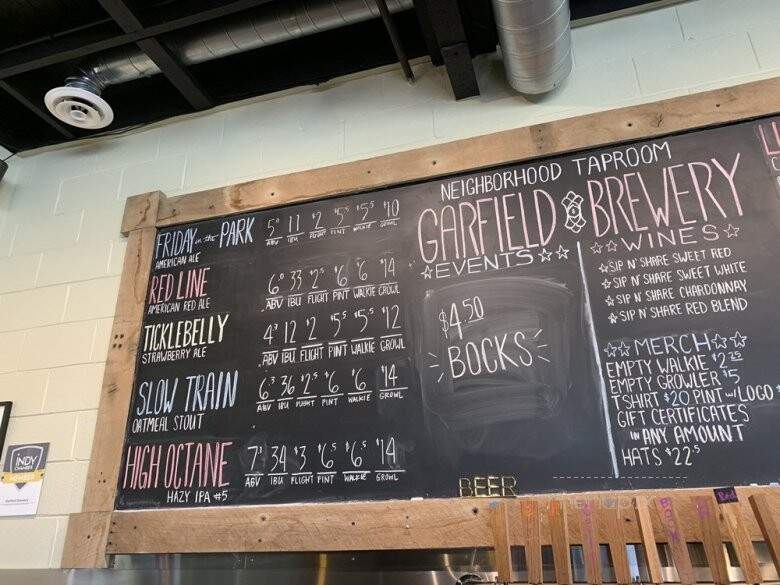 FRIDAY in the PARK 5.0 11 $2 $5.5 $5.5 $10
ABV IBU FLIGHT PINT WALKIE GROWL
AMERICAN ALE
RED LINE 6.0 33 $2.5 $6 $6 $14
ABV IBU FLIGHT PINT WALKIE GROWL
AMERICAN RED ALE
TICKLEBELLY 12 $2 $5.5 $5.5 $12
ABV IBU FLIGHT PINT WALKIE GROWL
STRAWBERRY ALE
SLOW TRAIN 6.3 36 $2.5 $6 $6 $14
ABV IBU FLIGHT PINT WALKIE GROWL
OATMEAL STOUT
HIGH OCTANE 34 $3 $6.5 $6.5 $14
ABV IBU FLIGHT PINT WALKIE GROWL
HAZY IPA #5
NEIGHBORHOOD TAPROOM
GARFIELD BREWERY
EVENTS
$4.50
BOCKS
BEER
WINES
SIP N' SHARE SWEET RED
SIP N' SHARE SWEET WHITE
SIP N' SHARE CHARDONNAY
SIP N' SHARE RED BLEND
MERCH
EMPTY WALKIE $2.25
EMPTY GROWLER $5
TSHIRT $20 PINT w/LOGO
GIFT CERTIFICATES
IN ANY AMOUNT
HATS $22.5
INDY